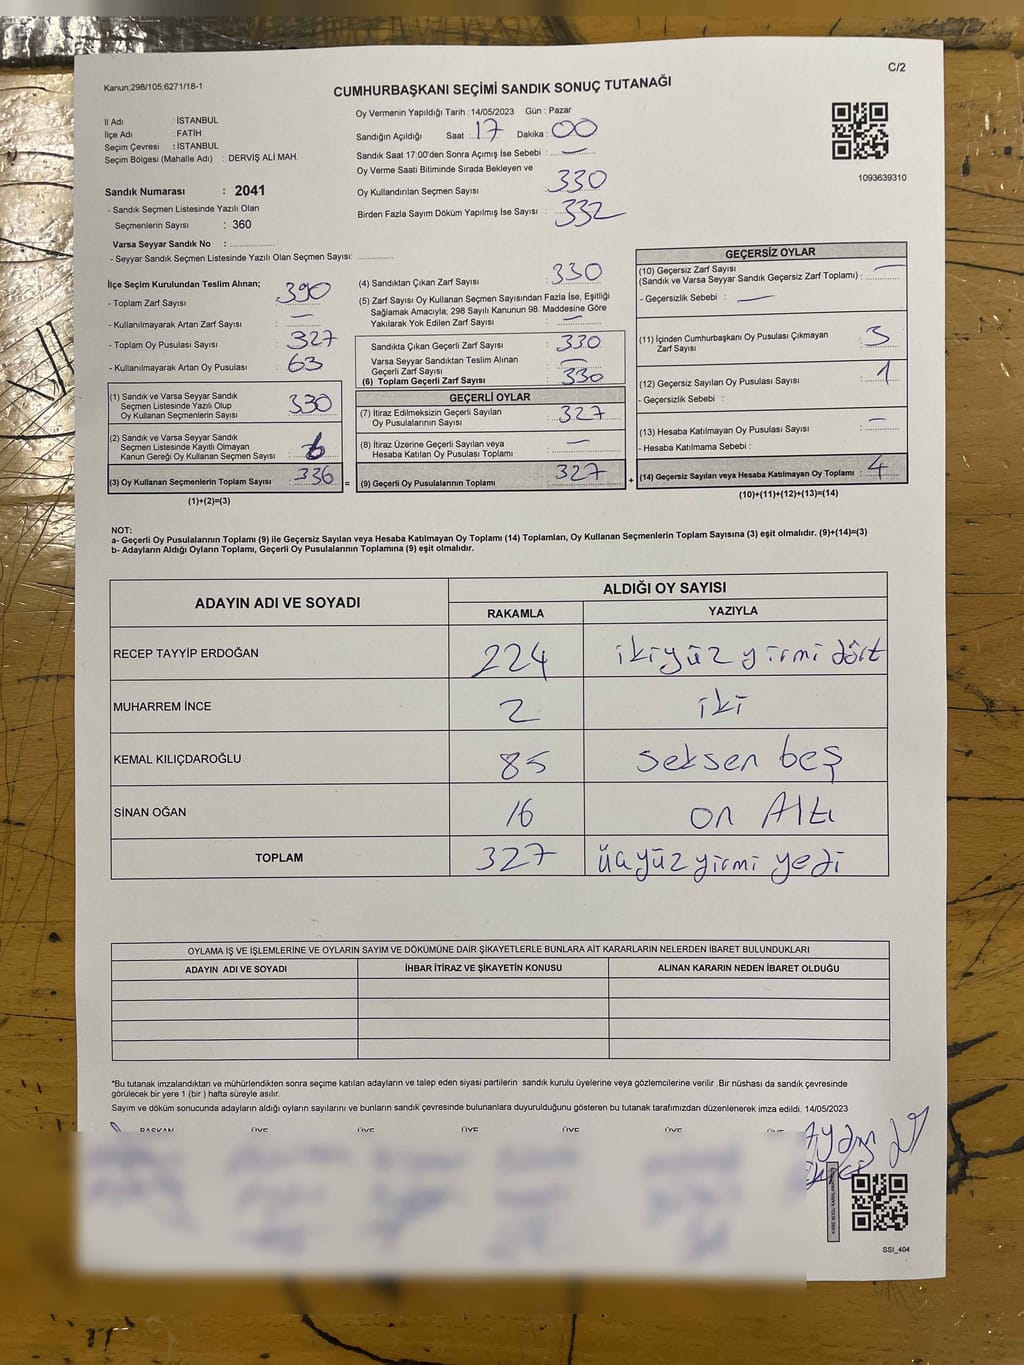 C/2
Kanun;298/105,6271/18-1
CUMHURBAŞKANI SEÇİMİ SANDIK SONUÇ TUTANAĞI
İl Adı : İSTANBUL
İlçe Adı : FATİH
Seçim Çevresi : İSTANBUL
Seçim Bölgesi (Mahalle Adı) : DERVİŞ ALİ MAH.
Sandık Numarası : 2041
- Sandık Seçmen Listesinde Yazılı Olan
Seçmenlerin Sayısı : 360
Varsa Seyyar Sandık No : ................
- Seyyar Sandık Seçmen Listesinde Yazılı Olan Seçmen Sayısı: ............
Oy Vermenin Yapıldığı Tarih :14/05/2023 Gün : Pazar
Sandığın Açıldığı Saat : 17 Dakika : 00
Sandık Saat 17:00'den Sonra Açımış İse Sebebi : —
Oy Verme Saati Bitiminde Sırada Bekleyen ve
Oy Kullandırılan Seçmen Sayısı : 330
Birden Fazla Sayım Döküm Yapılmış İse Sayısı : 332
1093639310
İlçe Seçim Kurulundan Teslim Alınan;
- Toplam Zarf Sayısı : 390
- Kullanılmayarak Artan Zarf Sayısı : —
- Toplam Oy Pusulası Sayısı : 327
- Kullanılmayarak Artan Oy Pusulası : 63
(1) Sandık ve Varsa Seyyar Sandık
Seçmen Listesinde Yazılı Olup
Oy Kullanan Seçmenlerin Sayısı : 330
(2) Sandık ve Varsa Seyyar Sandık
Seçmen Listesinde Kayıtlı Olmayan
Kanun Gereği Oy Kullanan Seçmen Sayısı : 6
(3) Oy Kullanan Seçmenlerin Toplam Sayısı : 336 =
(1)+(2)=(3)
(4) Sandıktan Çıkan Zarf Sayısı : 330
(5) Zarf Sayısı Oy Kullanan Seçmen Sayısından Fazla İse, Eşitliği
Sağlamak Amacıyla; 298 Sayılı Kanunun 98. Maddesine Göre
Yakılarak Yok Edilen Zarf Sayısı : —
Sandıkta Çıkan Geçerli Zarf Sayısı : 330
Varsa Seyyar Sandıktan Teslim Alınan
Geçerli Zarf Sayısı : —
(6) Toplam Geçerli Zarf Sayısı : 330
GEÇERLİ OYLAR
(7) İtiraz Edilmeksizin Geçerli Sayılan
Oy Pusulalarının Sayısı : 327
(8) İtiraz Üzerine Geçerli Sayılan veya
Hesaba Katılan Oy Pusulası Toplamı : —
(9) Geçerli Oy Pusulalarının Toplamı : 327 +
GEÇERSİZ OYLAR
(10) Geçersiz Zarf Sayısı
(Sandık ve Varsa Seyyar Sandık Geçersiz Zarf Toplamı) : —
- Geçersizlik Sebebi : —
(11) İçinden Cumhurbaşkanı Oy Pusulası Çıkmayan
Zarf Sayısı : 3
(12) Geçersiz Sayılan Oy Pusulası Sayısı : 1
- Geçersizlik Sebebi :
(13) Hesaba Katılmayan Oy Pusulası Sayısı : —
- Hesaba Katılmama Sebebi :
(14) Geçersiz Sayılan veya Hesaba Katılmayan Oy Toplamı : 4
(10)+(11)+(12)+(13)=(14)
NOT:
a- Geçerli Oy Pusulalarının Toplamı (9) ile Geçersiz Sayılan veya Hesaba Katılmayan Oy Toplamı (14) Toplamları, Oy Kullanan Seçmenlerin Toplam Sayısına (3) eşit olmalıdır. (9)+(14)=(3)
b- Adayların Aldığı Oyların Toplamı, Geçerli Oy Pusulalarının Toplamına (9) eşit olmalıdır.
ADAYIN ADI VE SOYADI ALDIĞI OY SAYISI
RAKAMLA YAZIYLA
RECEP TAYYİP ERDOĞAN 224 ikiyüz yirmi dört
MUHARREM İNCE 2 iki
KEMAL KILIÇDAROĞLU 85 seksen beş
SİNAN OĞAN 16 on Altı
TOPLAM 327 üçyüz yirmi yedi
OYLAMA İŞ VE İŞLEMLERİNE VE OYLARIN SAYIM VE DÖKÜMÜNE DAİR ŞİKAYETLERLE BUNLARA AİT KARARLARIN NELERDEN İBARET BULUNDUKLARI
ADAYIN ADI VE SOYADI İHBAR İTİRAZ VE ŞİKAYETİN KONUSU ALINAN KARARIN NEDEN İBARET OLDUĞU
*Bu tutanak imzalandıktan ve mühürlendikten sonra seçime katılan adayların ve talep eden siyasi partilerin sandık kurulu üyelerine veya gözlemcilerine verilir .Bir nüshası da sandık çevresinde
görülecek bir yere 1 (bir ) hafta süreyle asılır.
Sayım ve döküm sonucunda adayların aldığı oyların sayılarını ve bunların sandık çevresinde bulunanlara duyurulduğunu gösteren bu tutanak tarafımızdan düzenlenerek imza edildi. 14/05/2023
BAŞKAN ÜYE ÜYE ÜYE ÜYE ÜYE
SSI_404